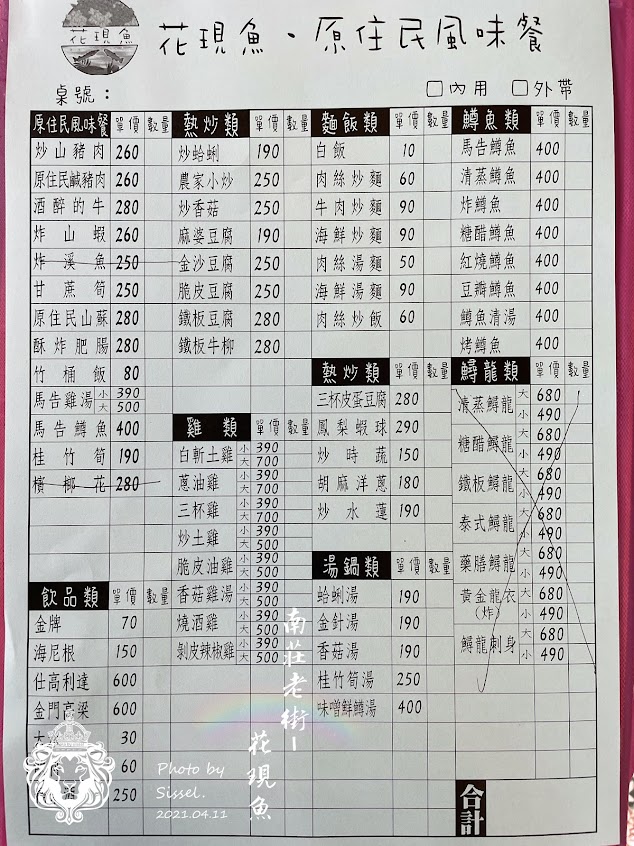 花現魚
花現魚、原住民風味餐
桌號：
□內用 □外帶
原住民風味餐 單價 數量
炒山豬肉 260
原住民鹹豬肉 260
酒醉的牛 280
炸山蝦 260
炸溪魚 250
甘蔗筍 250
原住民山蘇 280
酥炸肥腸 280
竹桶飯 80
馬告雞湯 小 390
大 500
馬告鱒魚 400
桂竹筍 190
檳榔花 280
飲品類 單價 數量
金牌 70
海尼根 150
仕高利達 600
金門高梁 600
大 30
60
250
熱炒類 單價 數量
炒蛤蜊 190
農家小炒 250
炒香菇 250
麻婆豆腐 190
金沙豆腐 250
脆皮豆腐 250
鐵板豆腐 280
鐵板牛柳 280
雞類 單價 數量
白斬土雞 小 390
大 700
蔥油雞 小 390
大 700
三杯雞 小 390
大 700
炒土雞 小 390
大 500
脆皮油雞 小 390
大 500
香菇雞湯 小 390
大 500
燒酒雞 小 390
大 500
剝皮辣椒雞 小 390
大 500
麵飯類 單價 數量
白飯 10
肉絲炒麵 60
牛肉炒麵 90
海鮮炒麵 90
肉絲湯麵 50
海鮮湯麵 90
肉絲炒飯 60
熱炒類 單價 數量
三杯皮蛋豆腐 280
鳳梨蝦球 290
炒時蔬 150
胡麻洋蔥 180
炒水蓮 190
湯鍋類 單價 數量
蛤蜊湯 190
金針湯 190
香菇湯 190
桂竹筍湯 250
味噌鮮鱒湯 400
鱒魚類 單價 數量
馬告鱒魚 400
清蒸鱒魚 400
炸鱒魚 400
糖醋鱒魚 400
紅燒鱒魚 400
豆瓣鱒魚 400
鱒魚清湯 400
烤鱒魚 400
鱘龍類 單價 數量
清蒸鱘龍 大 680
小 490
糖醋鱘龍 大 680
小 490
鐵板鱘龍 大 680
小 490
泰式鱘龍 大 680
小 490
藥膳鱘龍 大 680
小 490
黃金龍衣(炸) 大 680
小 490
鱘龍刺身 大 680
小 490
合計
南莊老街-
花現魚
Photo by
Sissel.
2021.04.11